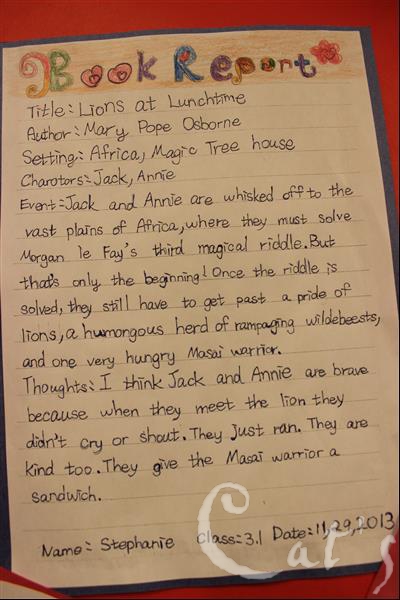 Book Report
Title: Lions at Lunchtime
Author: Mary Pope Osborne
Setting: Africa, Magic Tree house
Charotors: Jack, Annie
Event: Jack and Annie are whisked off to the
vast plains of Africa, where they must solve
Morgan le Fay's third magical riddle. But
that's only the beginning! Once the riddle is
solved, they still have to get past a pride of
lions, a humongous herd of rampaging wildebeests,
and one very hungry Masai warrior.
Thoughts: I think Jack and Annie are brave
because when they meet the lion they
didn't cry or shout. They just ran. They are
kind too. They give the Masai warrior a
sandwich.
Name: Stephanie Class: 3.1 Date: 11,29,2013
Cat's